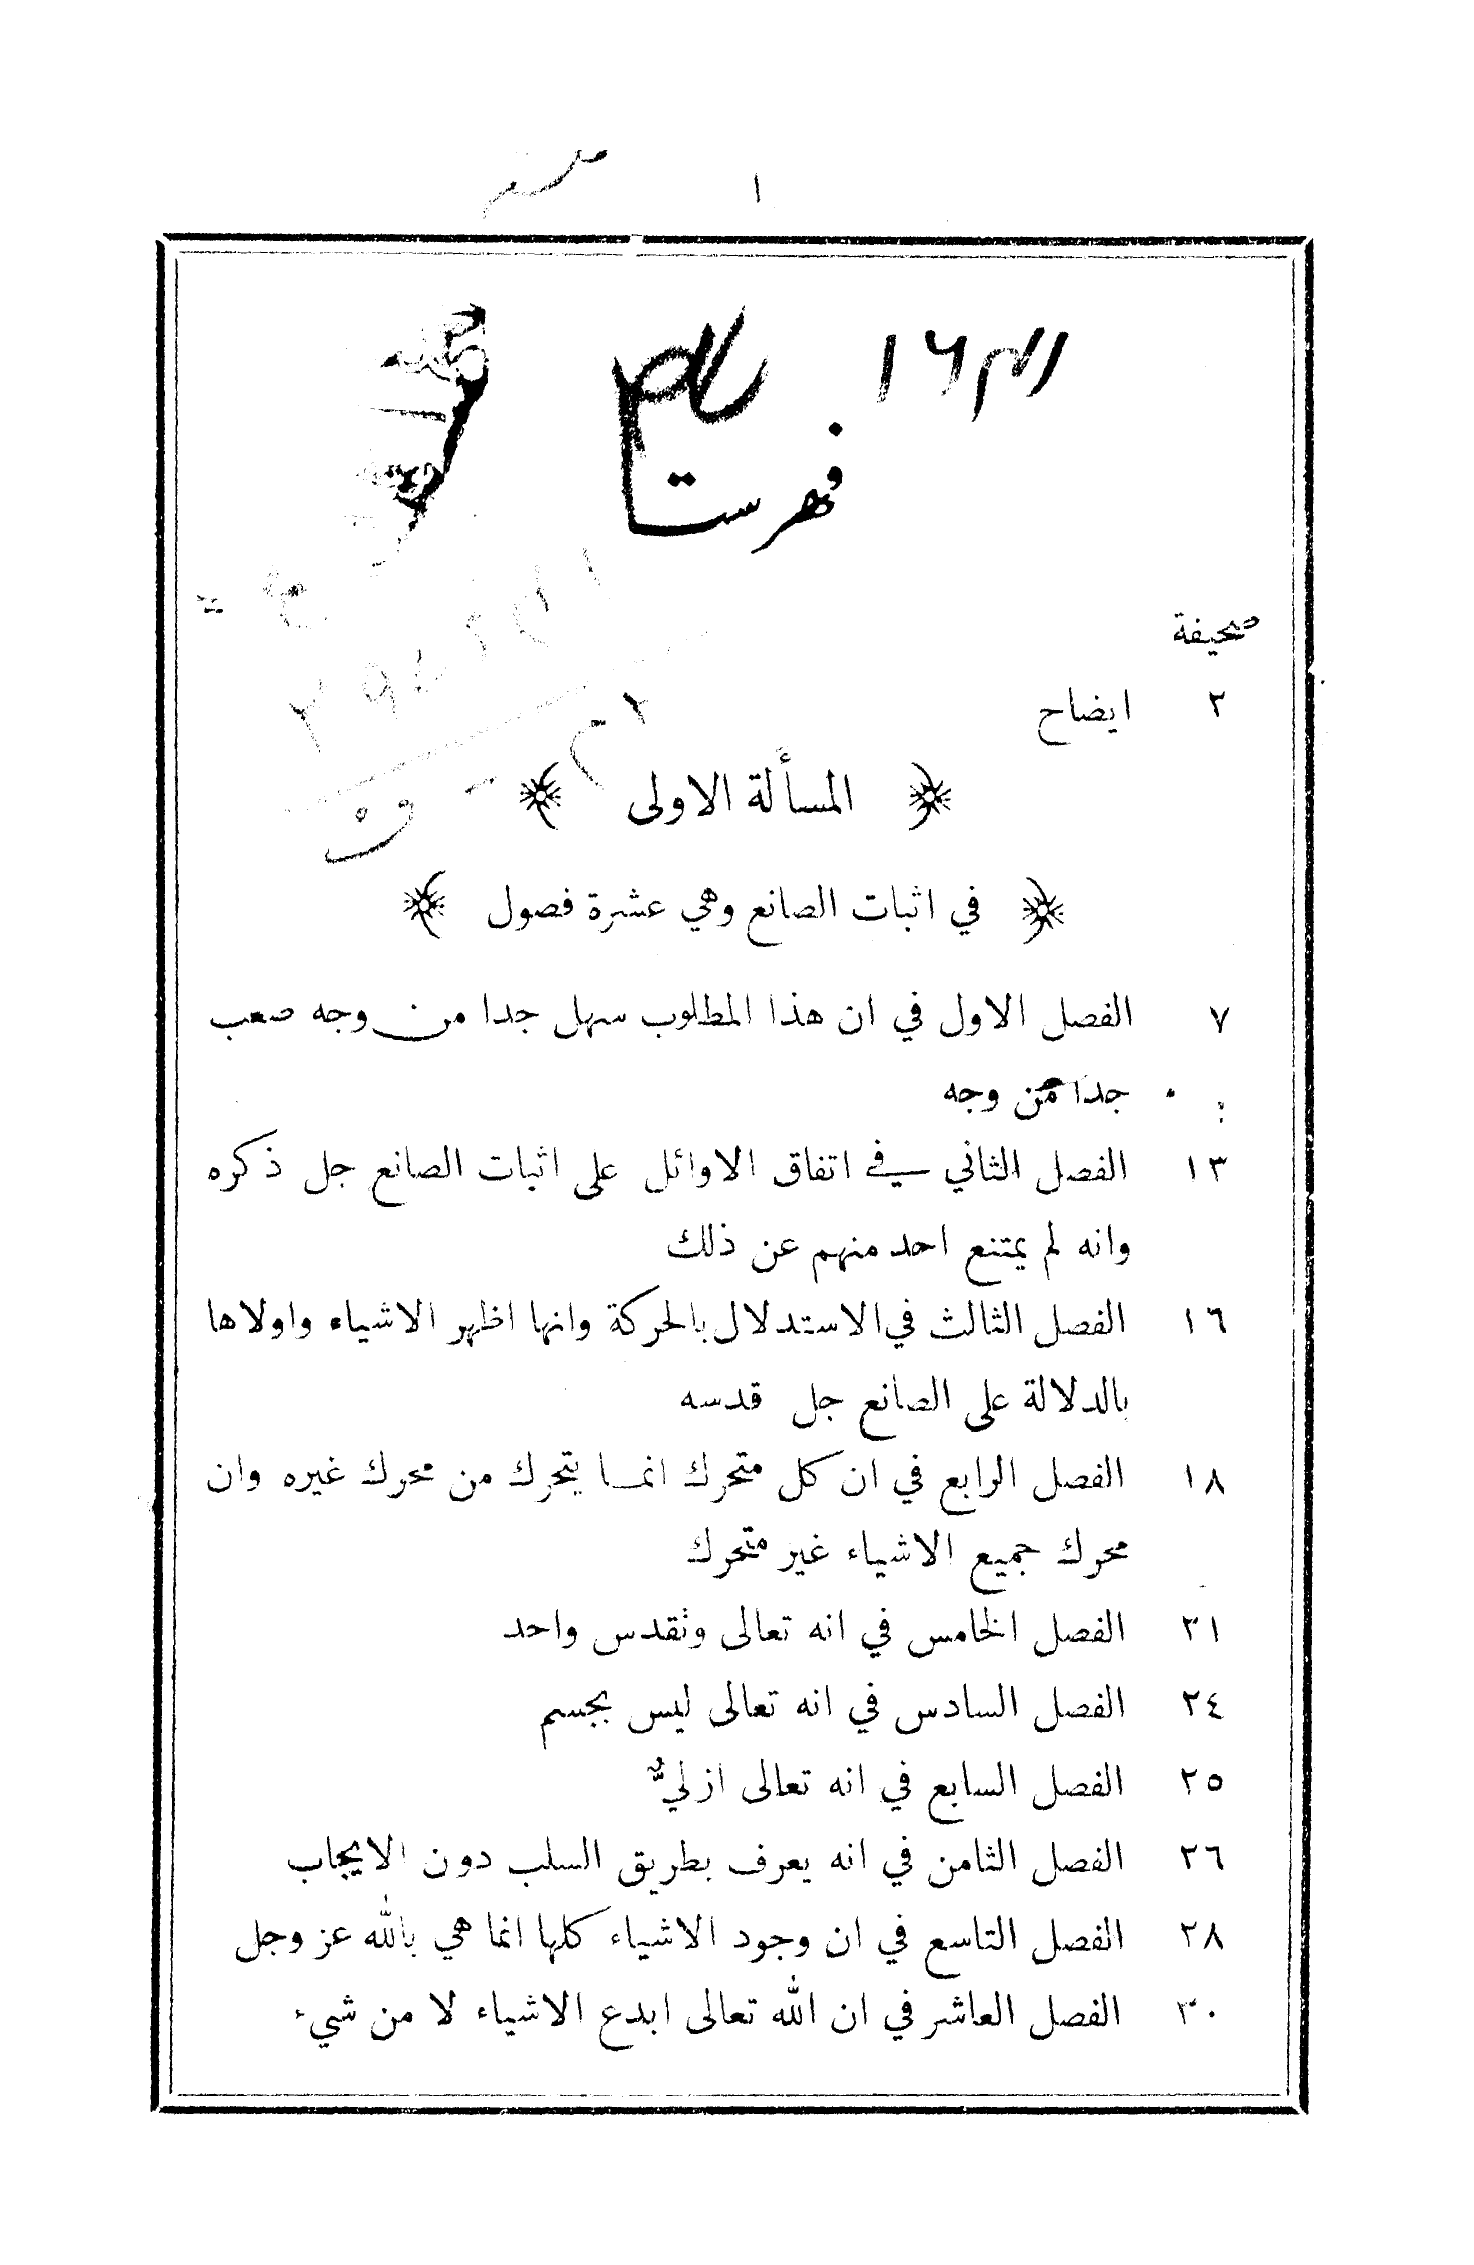 ١
فهرست
صحيفة
٢ ايضاح
المسألة الاولى
في اثبات الصانع وهي عشرة فصول
٧ الفصل الاول في ان هذا المطلوب سهل جدا من وجه صعب
جدا من وجه
١٣ الفصل الثاني في اتفاق الاوائل على اثبات الصانع جل ذكره
وانه لم يمتنع احد منهم عن ذلك
١٦ الفصل الثالث في الاستدلال بالحركة وانها اظهر الاشياء واولاها
بالدلالة على الصانع جل قدسه
١٨ الفصل الرابع في ان كل متحرك انمـــا يتحرك من محرك غيره وان
محرك جميع الاشياء غير متحرك
٢١ الفصل الخامس في انه تعالى وتقدس واحد
٢٤ الفصل السادس في انه تعالى ليس بجسم
٢٥ الفصل السابع في انه تعالى ازليٌّ
٢٦ الفصل الثامن في انه يعرف بطريق السلب دون الايجاب
٢٨ الفصل التاسع في ان وجود الاشياء كلها انما هي بالله عز وجل
٣٠ الفصل العاشر في ان الله تعالى ابدع الاشياء لا من شيء